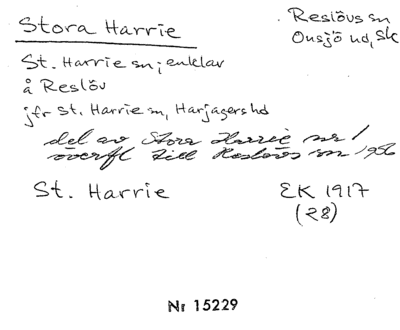 Stora Harrie
Reslövs sn
Onsjö hd, Sk
St. Harrie sn; enklav
å Reslöv
jfr St. Harrie sn, Harjagers hd
del av Stora Harrie nr 1
överfl till Reslövs sn 1956
St. Harrie
EK 1917
(28)
Nr 15229